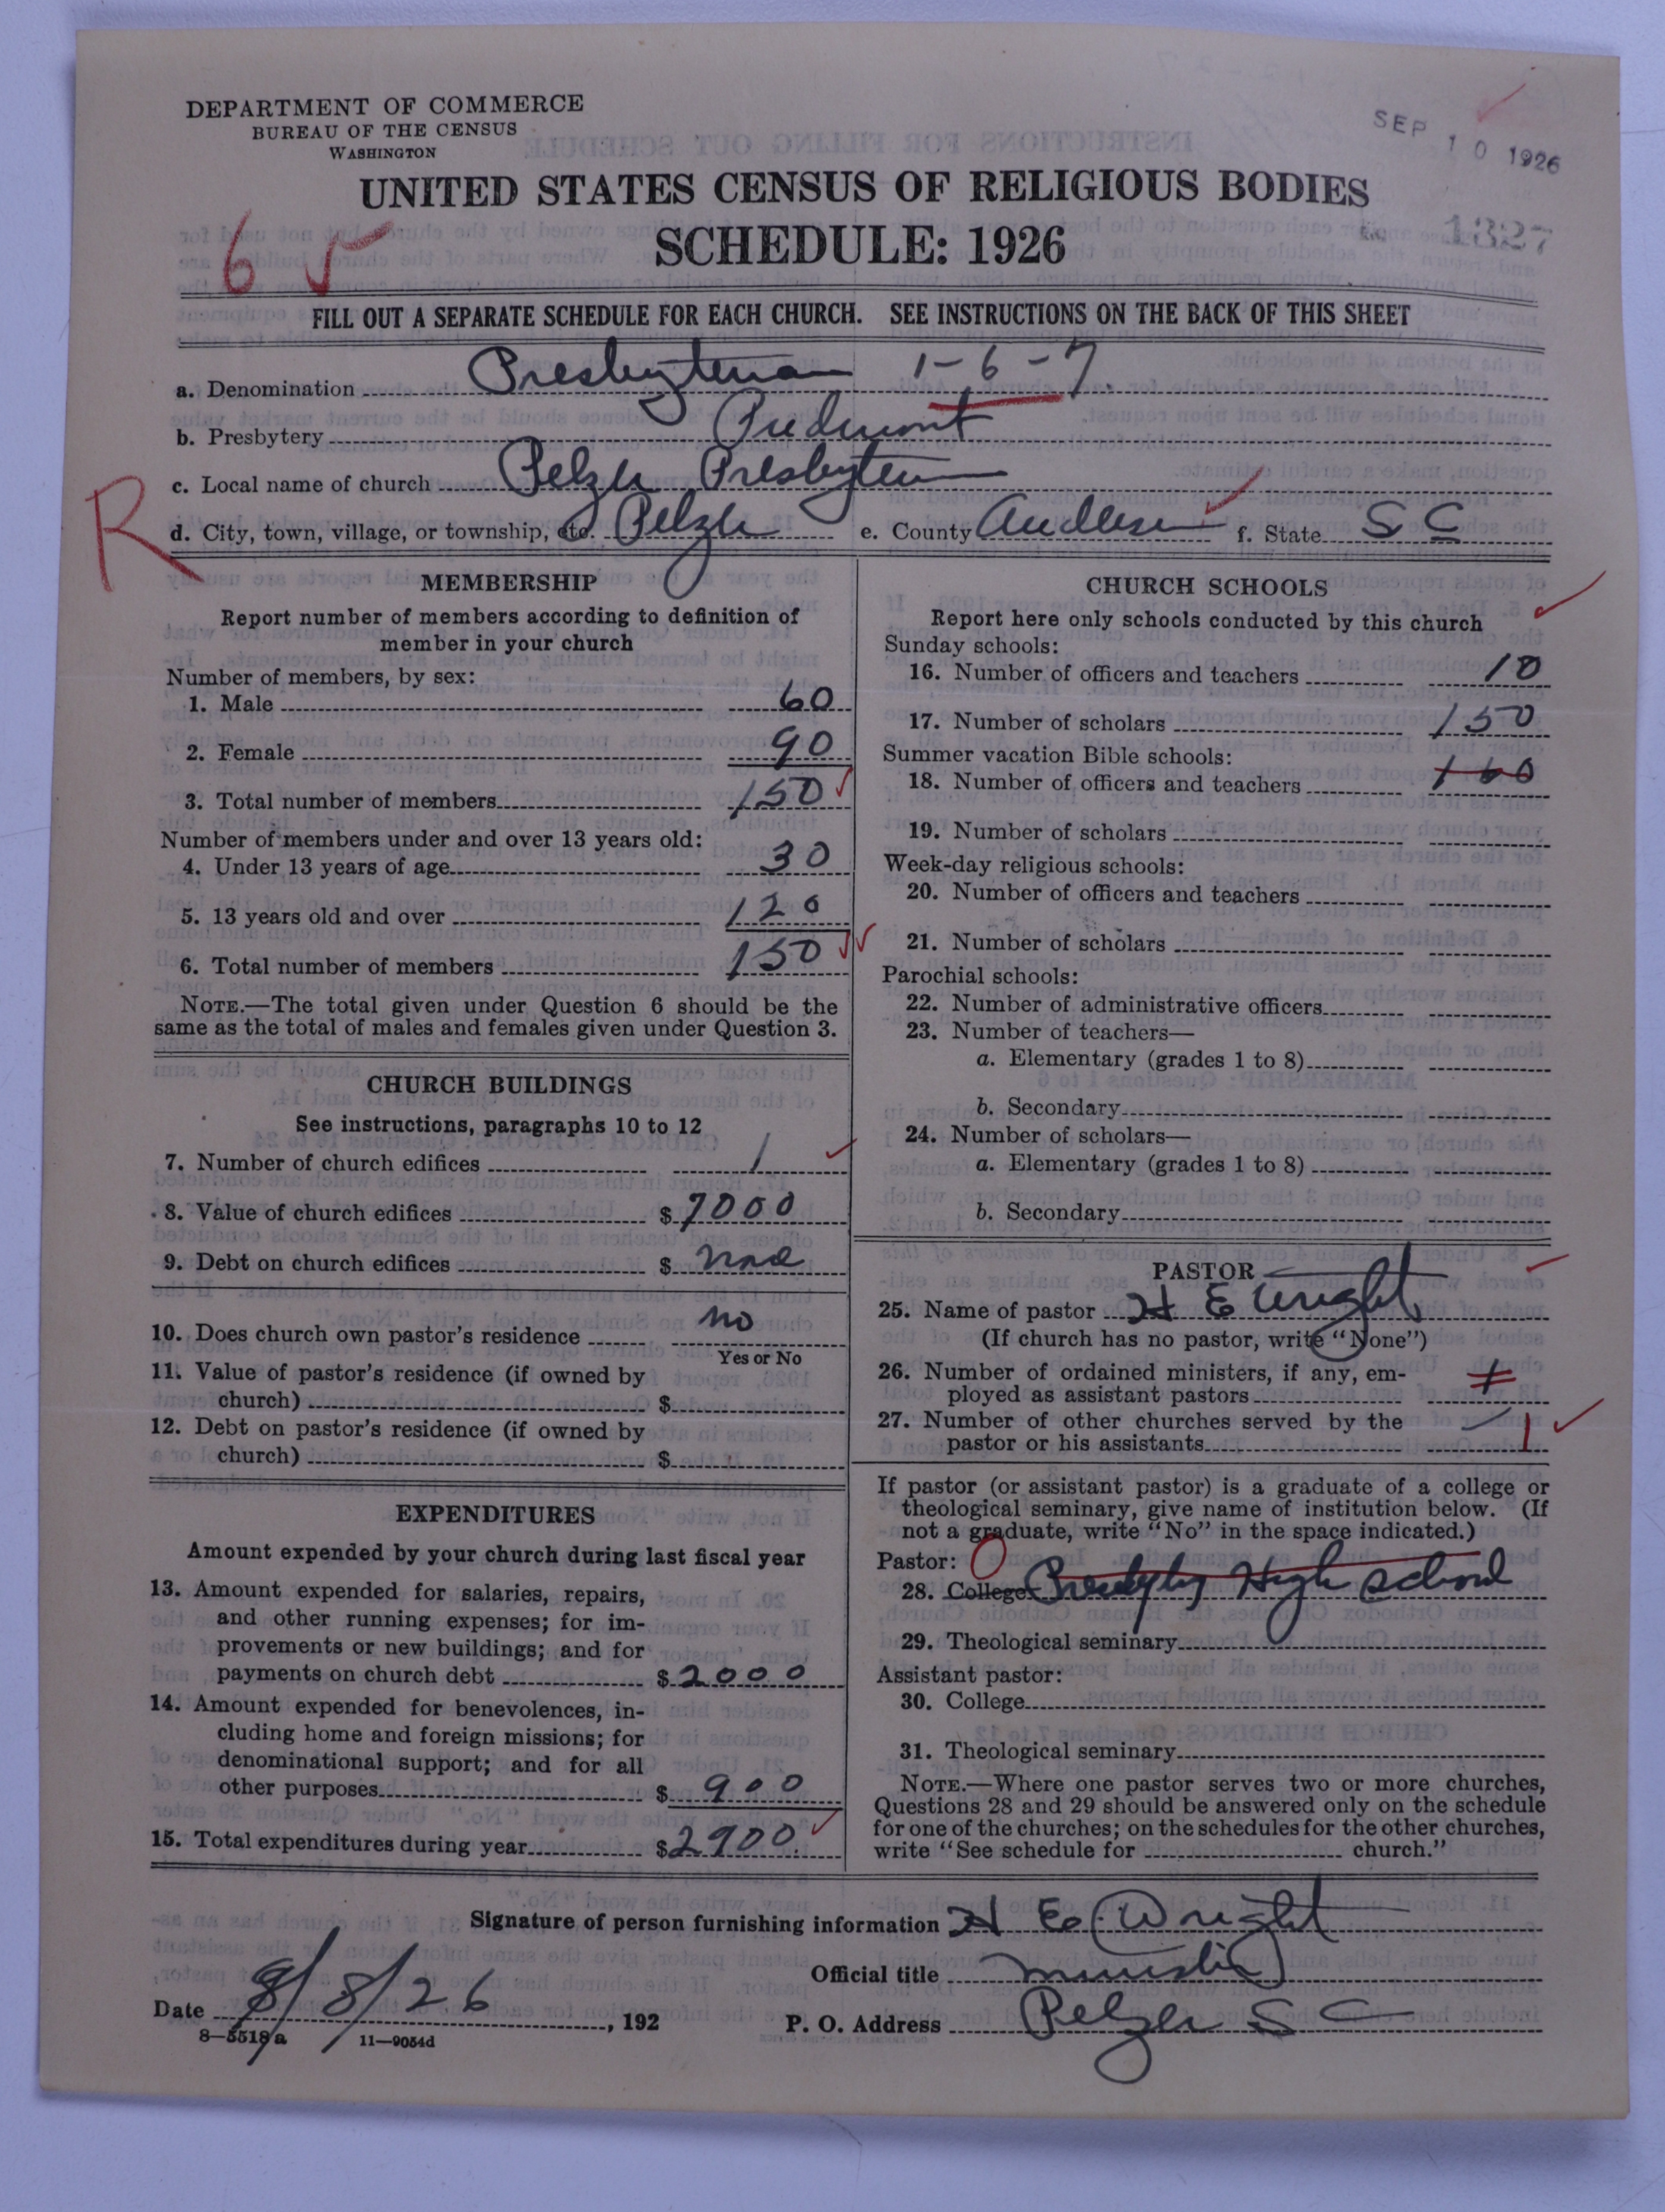 DEPARTMENT OF COMMERCE
BUREAU OF THE CENSUS
WASHINGTON
SEP 10 1926
UNITED STATES CENSUS OF RELIGIOUS BODIES
SCHEDULE: 1926
1327
6
FILL OUT A SEPARATE SCHEDULE FOR EACH CHURCH. SEE INSTRUCTIONS ON THE BACK OF THIS SHEET
a. Denomination Presbyterian 1-6-7
b. Presbytery Piedmont
c. Local name of church Pelzer Presbyterian
R
d. City, town, village, or township, etc. Pelzer e. County Anderson f. State S C
MEMBERSHIP
Report number of members according to definition of
member in your church
Number of members, by sex:
1. Male 60
2. Female 90
3. Total number of members 150
Number of members under and over 13 years old:
4. Under 13 years of age 30
5. 13 years old and over 120
6. Total number of members 150
NOTE.—The total given under Question 6 should be the
same as the total of males and females given under Question 3.
CHURCH BUILDINGS
See instructions, paragraphs 10 to 12
7. Number of church edifices 1
8. Value of church edifices $ 7000
9. Debt on church edifices $ none
10. Does church own pastor's residence no
Yes or No
11. Value of pastor's residence (if owned by
church) $
12. Debt on pastor's residence (if owned by
church) $
EXPENDITURES
Amount expended by your church during last fiscal year
13. Amount expended for salaries, repairs,
and other running expenses; for im-
provements or new buildings; and for
payments on church debt $ 2000
14. Amount expended for benevolences, in-
cluding home and foreign missions; for
denominational support; and for all
other purposes $ 900
15. Total expenditures during year $ 2900
CHURCH SCHOOLS
Report here only schools conducted by this church
Sunday schools:
16. Number of officers and teachers 10
17. Number of scholars 150
Summer vacation Bible schools:
18. Number of officers and teachers 160
19. Number of scholars
Week-day religious schools:
20. Number of officers and teachers
21. Number of scholars
Parochial schools:
22. Number of administrative officers
23. Number of teachers—
a. Elementary (grades 1 to 8)
b. Secondary
24. Number of scholars—
a. Elementary (grades 1 to 8)
b. Secondary
PASTOR
25. Name of pastor H E Wright
(If church has no pastor, write "None")
26. Number of ordained ministers, if any, em-
ployed as assistant pastors
27. Number of other churches served by the
pastor or his assistants 1
If pastor (or assistant pastor) is a graduate of a college or
theological seminary, give name of institution below. (If
not a graduate, write "No" in the space indicated.)
Pastor:
28. College High School
29. Theological seminary
Assistant pastor:
30. College
31. Theological seminary
NOTE.—Where one pastor serves two or more churches,
Questions 28 and 29 should be answered only on the schedule
for one of the churches; on the schedules for the other churches,
write "See schedule for church."
Signature of person furnishing information H E Wright
Official title Minister
Date 9/8/26, 192
P. O. Address Pelzer S C
8—5518 a 11—9054d